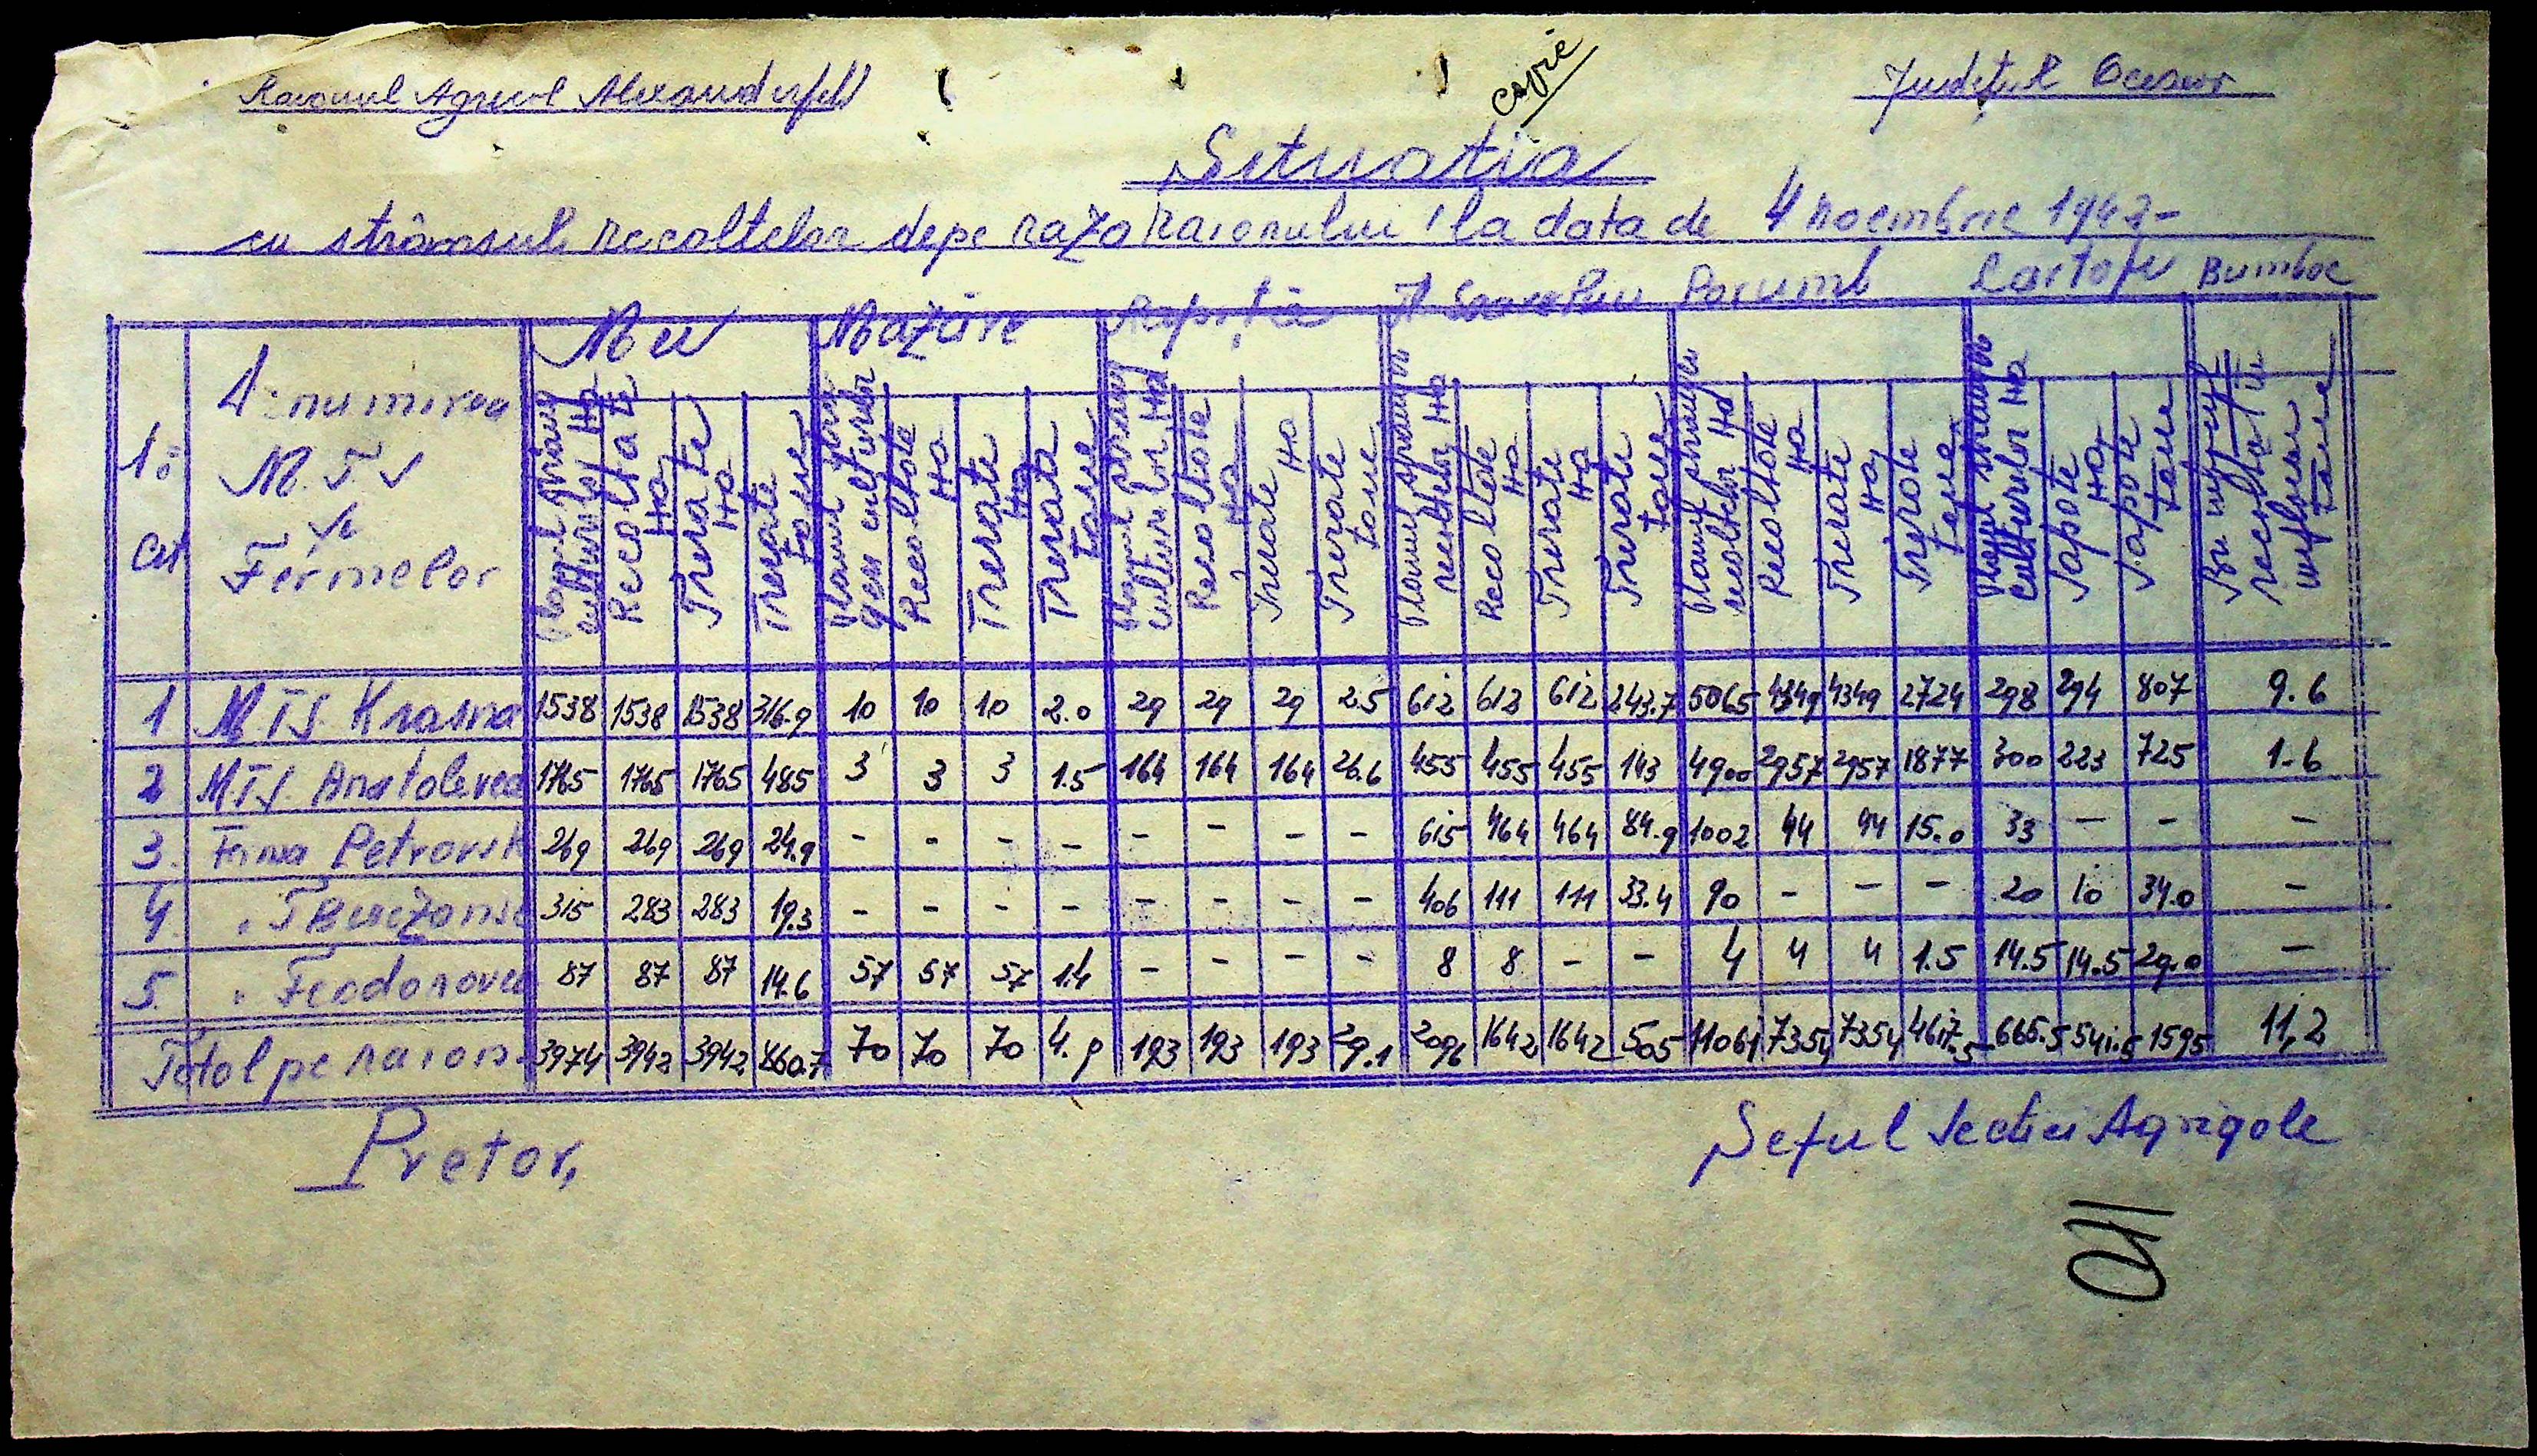 Raionul Agricol Alexanderfeld
copie
Județul Oceacov
Situatia
cu strânsul recoltelor depe raza raionului la data de 4 noembrie 1942-
Meu Mazăre Răpiță Fl Soarelui Porumb Cartofi Bumbac
No crt Denumirea M.T.S și Fermelor
Planul însămânț culturilor Ha Recoltate Ha Treerate Ha Treerate tone
Recoltate Ha Treerate Ha Treerata tone
culturilor Ha Recoltate Ha Treerate Ha Treerate tone
Planul Ha Recoltate Ha Treerate Ha Treerate tone
Planul recoltelor Ha Recoltate Ha Treerate Ha Treerate tone
culturilor Ha Sapate Ha Sapate tone
recolta tone
1 M.T.S. Krasna 1538 1538 1538 316.9 10 10 10 2.0 29 29 29 2.5 612 612 612 243.7 5065 4349 4349 2724 298 294 807 9.6
2 M.T.S. Anatolevca 1765 1765 1765 485 3 3 3 1.5 164 164 164 26.6 455 455 455 143 4900 2957 2957 1877 300 223 725 1.6
3. Ferma Petrovsk 269 269 269 24.9 - - - - - - - - 615 464 464 84.9 1002 44 44 15.0 33 - - -
4. " Berezansc 315 283 283 19.3 - - - - - - - - 406 111 111 33.4 90 - - - 20 10 34.0 -
5. " Feodorovca 87 87 87 14.6 57 57 57 1.4 - - - - 8 8 - - 4 4 4 1.5 14.5 14.5 29.0 -
Total pe raion. 3974 3942 3942 860.7 70 70 70 4.9 193 193 193 29.1 2096 1642 1642 505 11061 7354 7354 4617.5 665.5 541.5 1595 11,2
Pretor,
Șeful Sectiei Agrigole